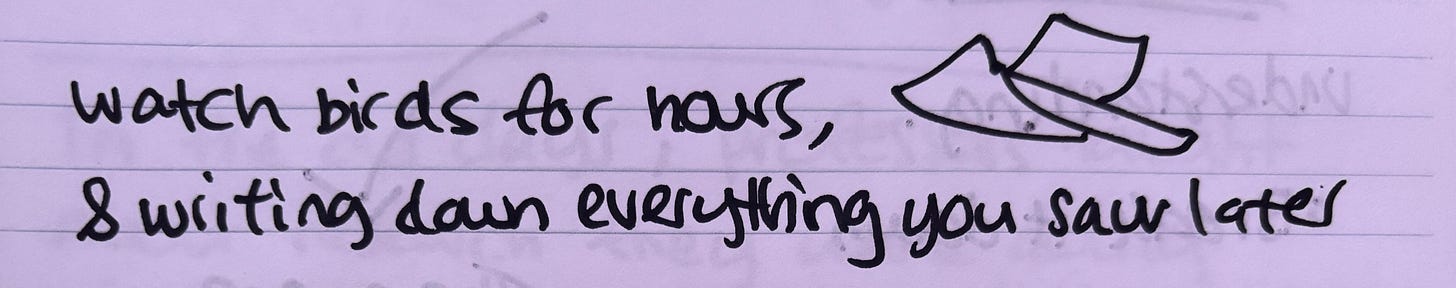 watch birds for hours,
& writing down everything you saw later